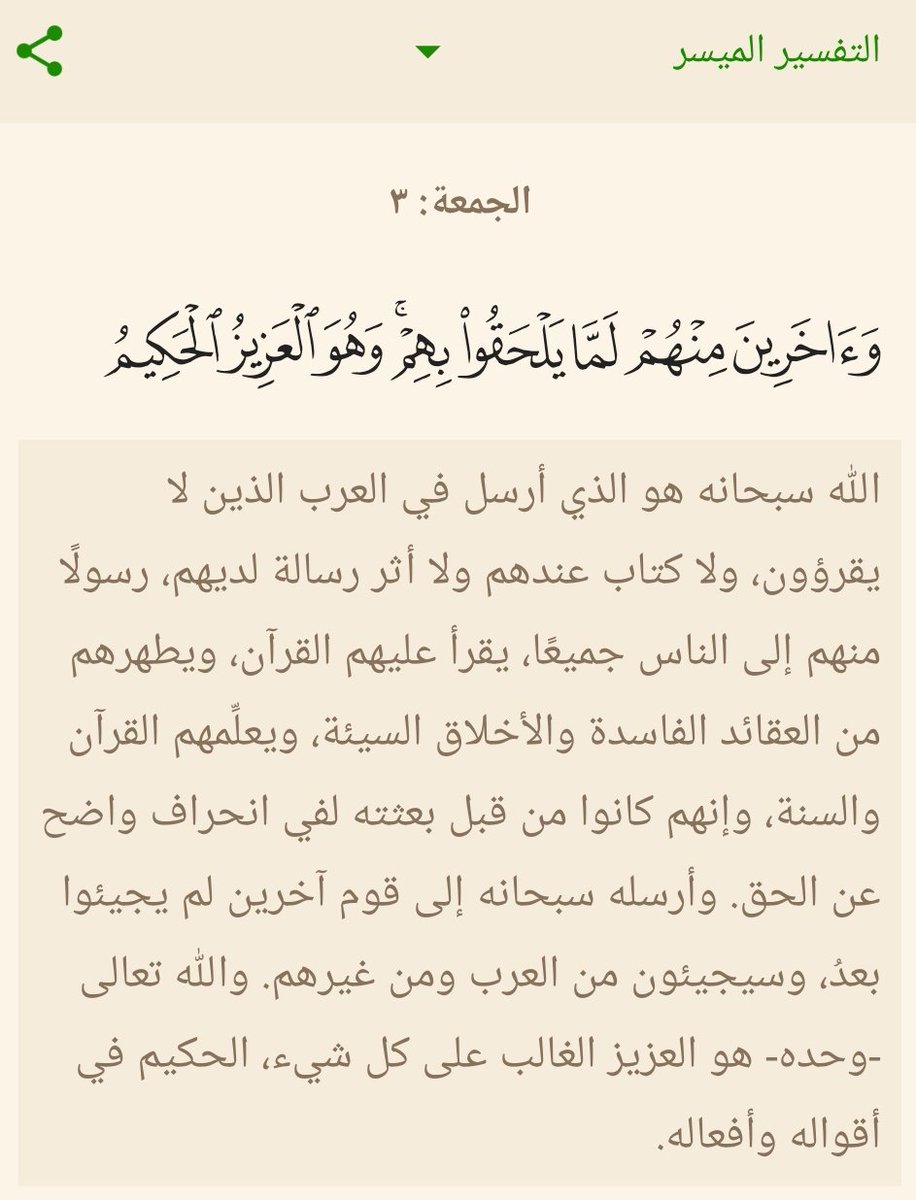 التفسير الميسر
الجمعة: ٣
وَءَاخَرِينَ مِنْهُمْ لَمَّا يَلْحَقُوا۟ بِهِمْ ۚ وَهُوَ ٱلْعَزِيزُ ٱلْحَكِيمُ
الله سبحانه هو الذي أرسل في العرب الذين لا
يقرؤون، ولا كتاب عندهم ولا أثر رسالة لديهم، رسولًا
منهم إلى الناس جميعًا، يقرأ عليهم القرآن، ويطهرهم
من العقائد الفاسدة والأخلاق السيئة، ويعلِّمهم القرآن
والسنة، وإنهم كانوا من قبل بعثته لفي انحراف واضح
عن الحق. وأرسله سبحانه إلى قوم آخرين لم يجيئوا
بعدُ، وسيجيئون من العرب ومن غيرهم. والله تعالى
-وحده- هو العزيز الغالب على كل شيء، الحكيم في
أقواله وأفعاله.